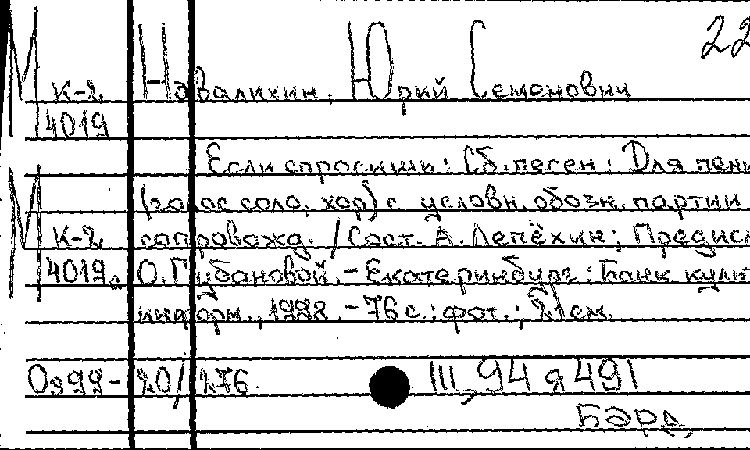 22
М к-2 Навалихин, Юрий Семенович
4019
Если спросишь: Сб. песен: Для пени
М (голос соло, хор) с условн. обозн. партии
к-2 сопровожд. / Сост. А. Лепёхин; Предисл
4019а О. Губановой. - Екатеринбург: Банк культ
информ., 1998. - 76 с.: фот.; 21 см.
Оз99- 20/276 Ш, 94 я 491
Бард.